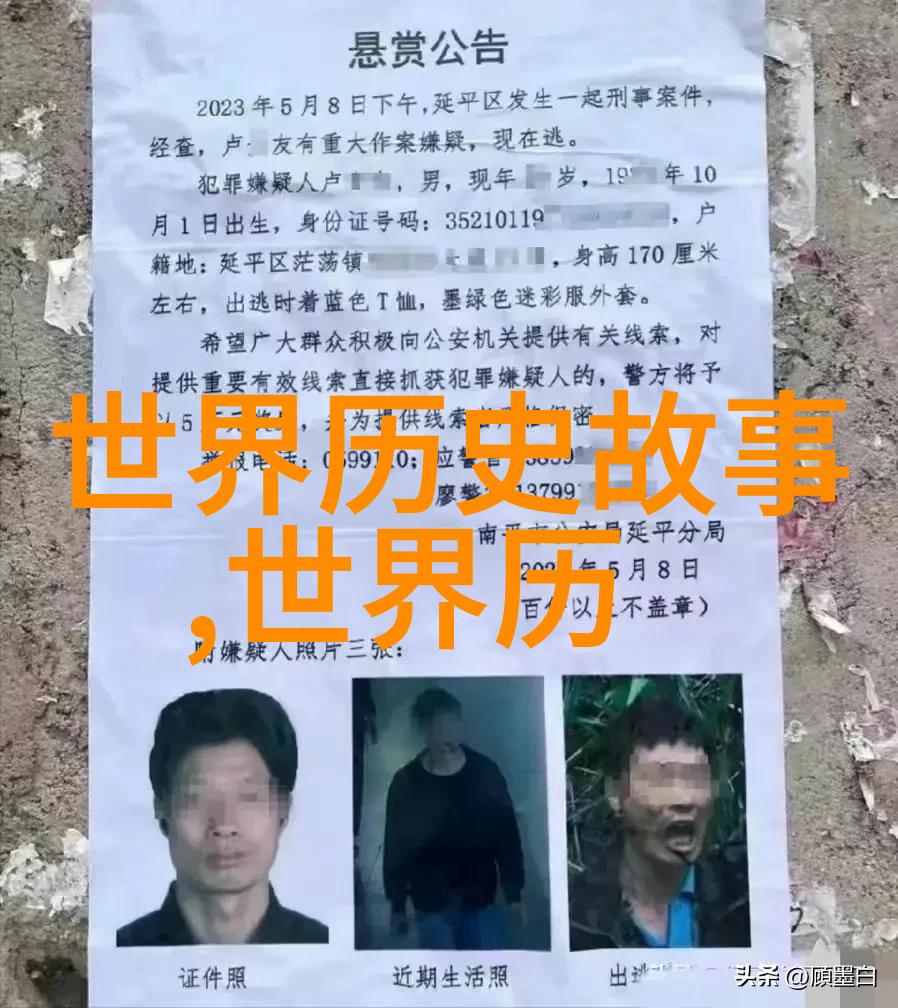 悬赏公告
2023年5月8日下午,延平区发生一起刑事案件,
经查,卢 友有重大作案嫌疑,现在逃。
犯罪嫌疑人卢 ,男,现年 岁,19 年10
月1日出生,身份证号码:35210119 ,户
籍地:延平区茫荡镇 ,身高170厘米
左右,出逃时着蓝色T恤,墨绿色迷彩服外套。
希望广大群众积极向公安机关提供有关线索,对
提供重要有效线索直接抓获犯罪嫌疑人的,警方将予
以5 ,并为提供线索者 保密
世界历史故事
举报电话:0599110;应警官
廖警 13799
南平市公安局延平分局
,世界历
年5月8日
百份以上不盖章)
附嫌疑人照片三张:
证件照
近期生活照
出逃
头条 @顾墨白